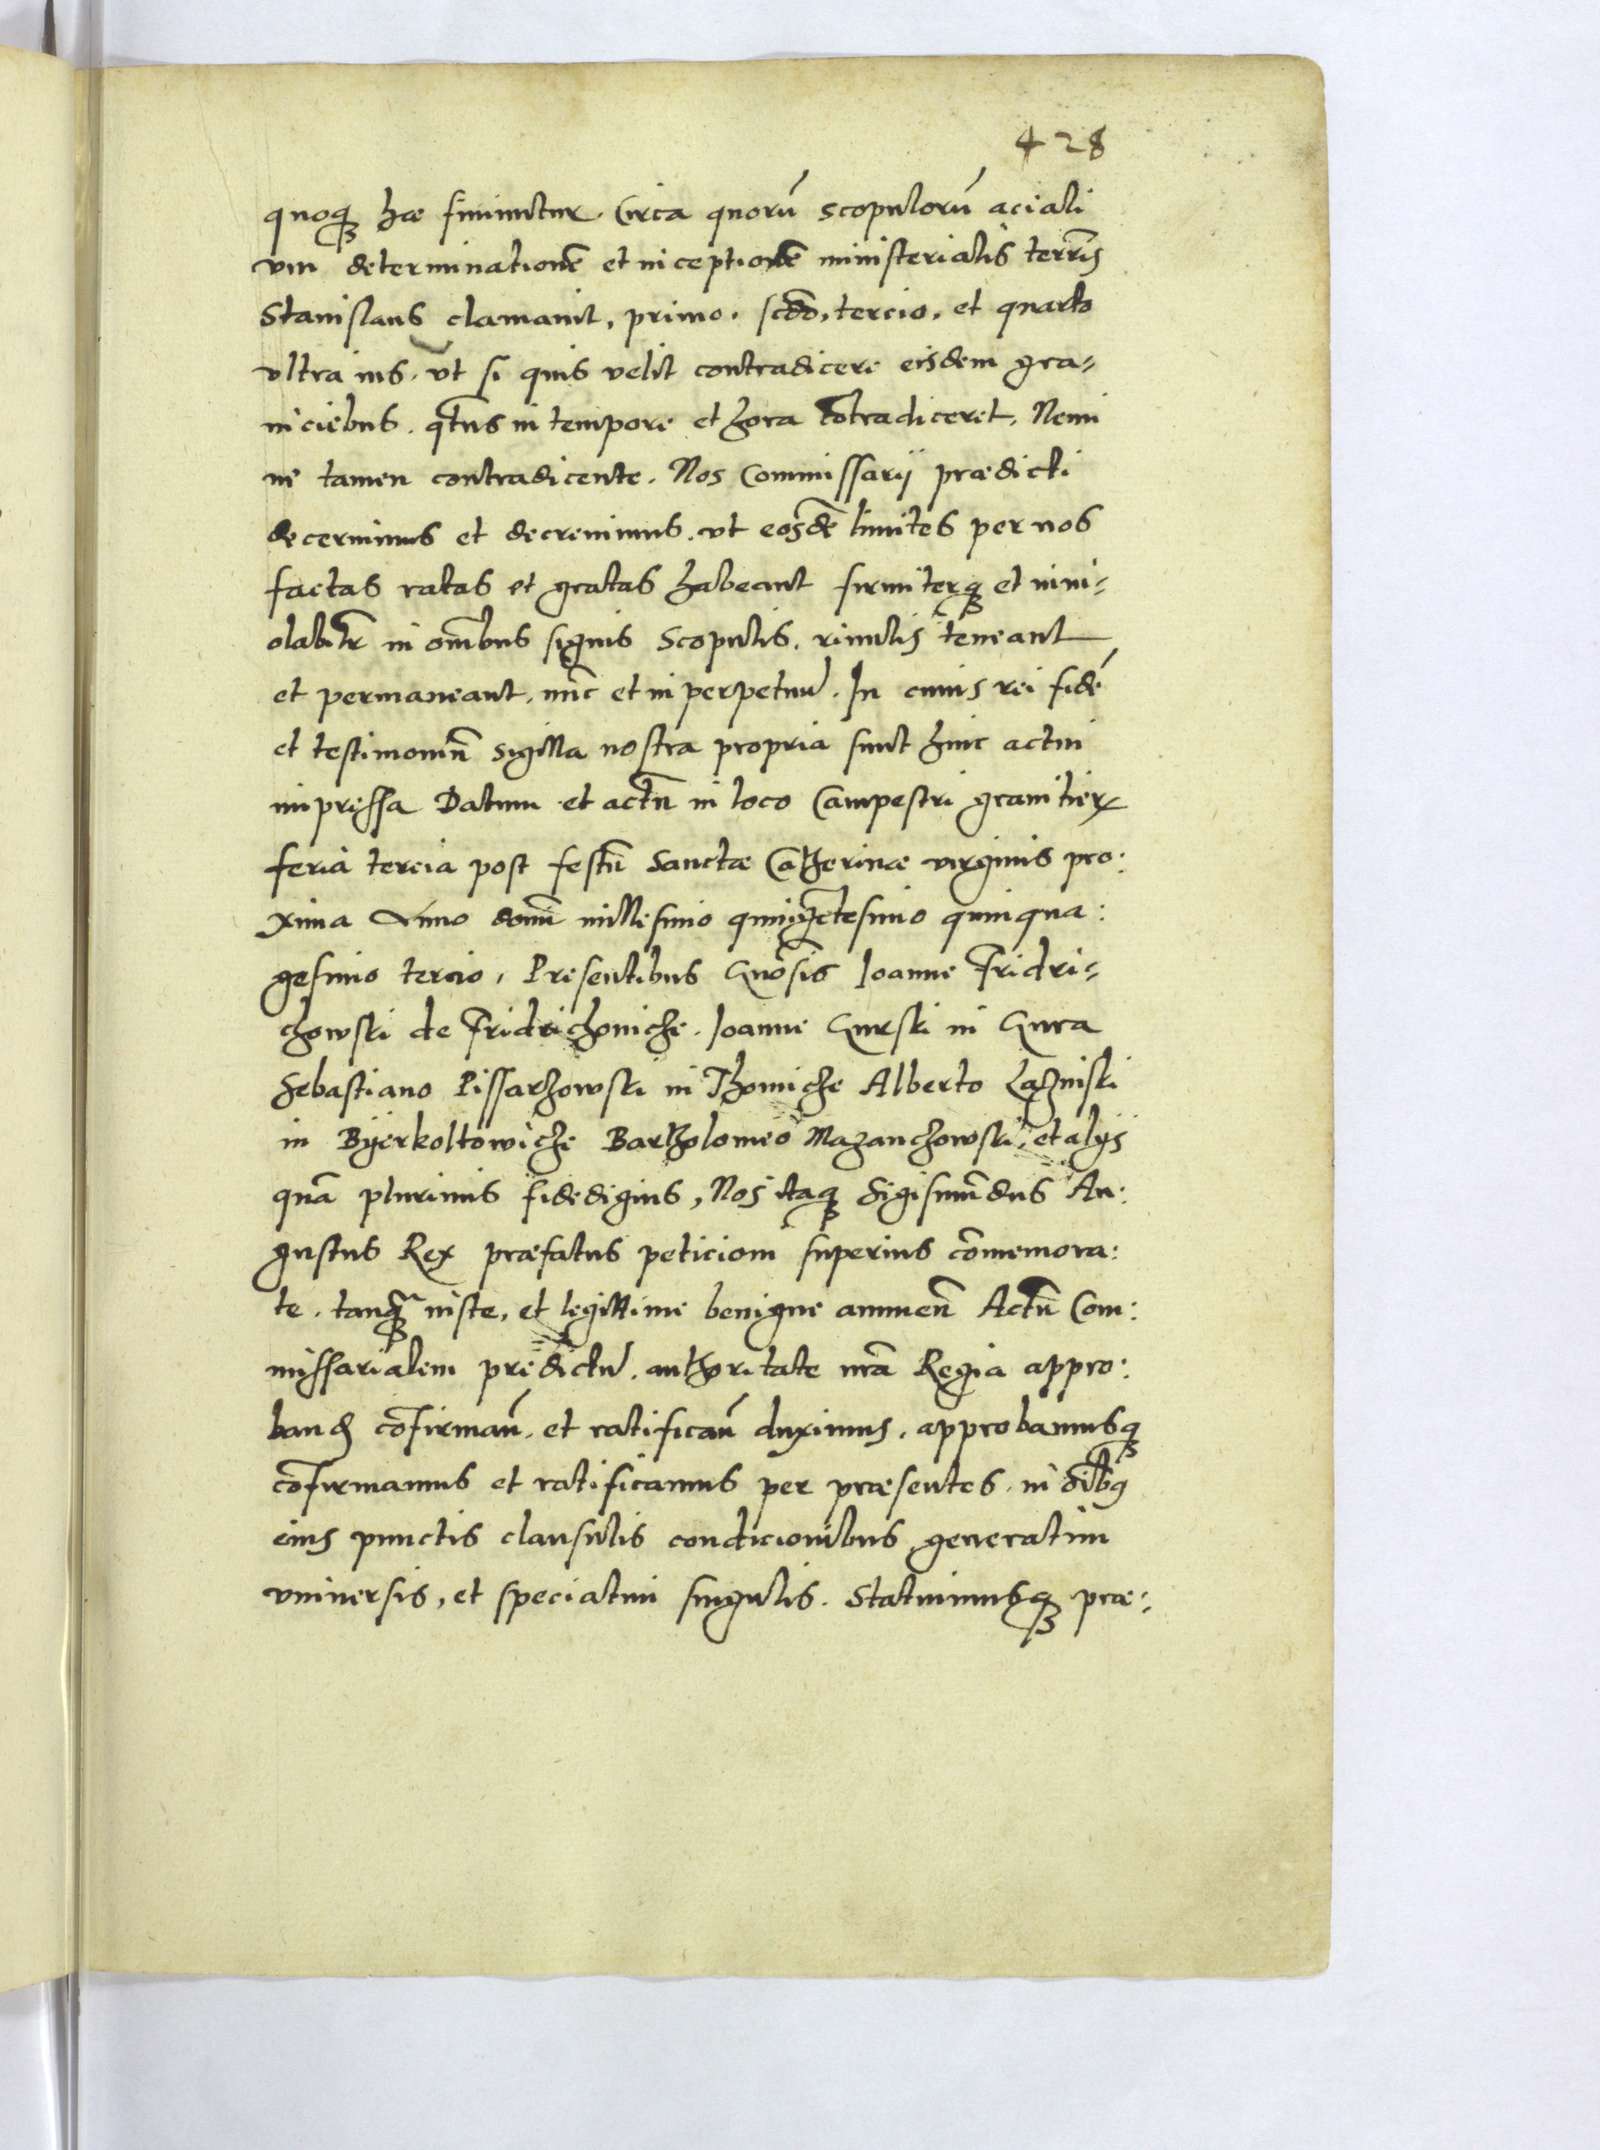 428
quoq₃ hæ finiuntur. Circa quorū scopulorū aciali
um determinationē et inceptionē ministerialis terrīs
Stanislaus clamauit, primo, scdō, tercio, et quarto
vltra ius. vt si quis velit contradicere eisdem gra-
niciebus. qtus in tempore et hora cōtradiceret. Nemi
ne tamen contradicente. Nos Commissarij prædicti
decernimus et decreuimus. vt eosdē limites per nos
factas ratas et gratas habeant firmiterq₃ et inui-
olabitr̄ in om̄ibus signis scopulis, riuulis teneant
et permaneant, nūc et in perpetuū. In cuius rei fidē
et testimoniū sigilla nostra propria sunt huic actui
impressa Datum et actū in loco Campestri granitierꝝ
feria tercia post festū Sanctæ Catherinæ virginis pro:
xima Anno domī millesimo quingētesimo quinqua:
gesimo tercio, Presentibus Gnōsis Joanne Fridri-
chowski de Fridrichouiche. Joanne Gurski in Gura
Sebastiano Pissarzowski in Thomiche Alberto Lazniski
in Byerkoltowiche Bartholomeo Mazanchowski, et alijs
quā plurimis fidedignis, Nos itaq₃ Sigismūdus Au:
gustus Rex præfatus peticioni superius cōmemora:
te. tanq₃ iuste, et legittime benigne annuen̄ Actū Com:
missarialem predictū. authoritate nrā Regia appro:
band̄ cōfirman̄. et ratifican̄ duximus. approbamusq₃
cōfirmamus et ratificamus per præsentes. in oībus
eius punctis clausulis condicionibus generatim
vniuersis, et speciatim singulis. Statuimusq₃ præ-